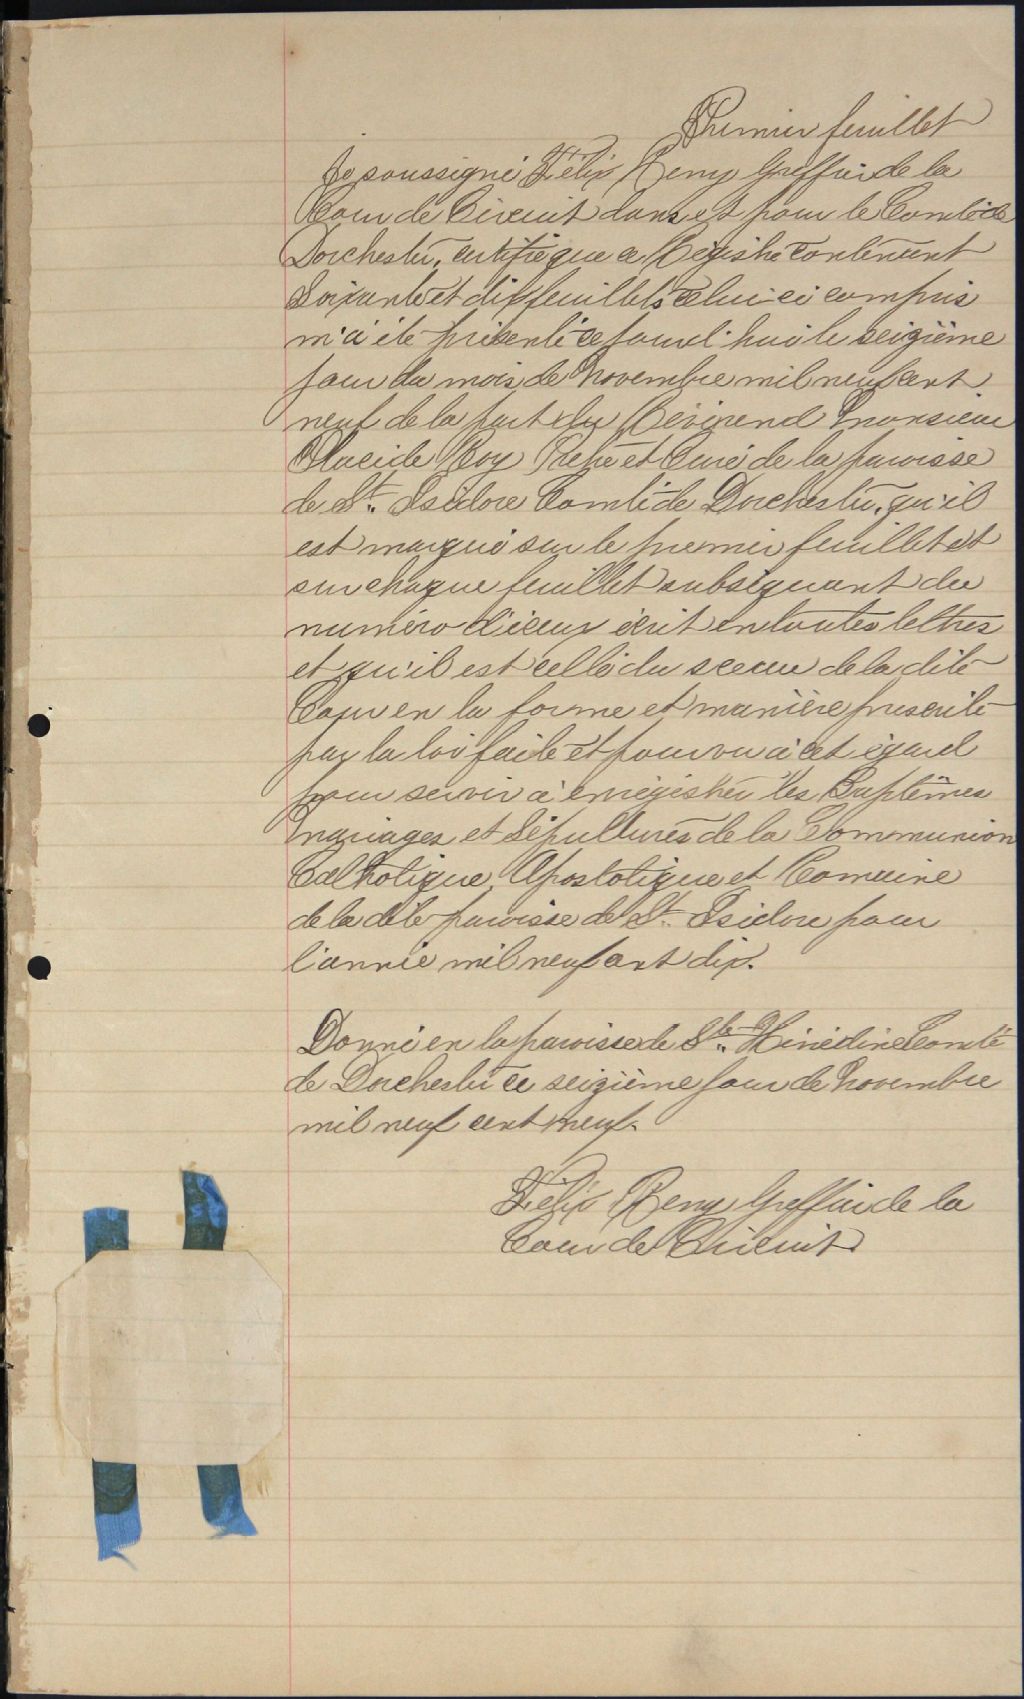 Premier feuillet
Je soussigné Félix Remy Greffier de la
Cour de Circuit dans et pour le Comté de
Dorchester, certifie que ce Registre contenant
Soixante et dix feuillets celui-ci compris
m'a été présenté ce jourd'hui le seizième
jour du mois de Novembre mil neuf cent
neuf de la part du Révérend Monsieur
Placide Roy Prêtre et Curé de la paroisse
de St. Isidore Comté de Dorchester, qu'il
est marqué sur le premier feuillet et
sur chaque feuillet subséquant du
numéro d'iceux écrit en toutes lettres
et qu'il est scellé du sceau de la dite
Cour en la forme et manière prescrite
par la loi faite et pourvu à cet égard
pour servir à enrégistrer les Baptêmes
mariages et Sépultures de la Communion
Catholique, Apostolique et Romaine
de la dite paroisse de St. Isidore pour
l'année mil neuf cent dix.
Donné en la paroisse de Ste. Hénédine Comté
de Dorchester ce seizième jour de Novembre
mil neuf cent neuf.
Félix Remy Greffier de la
Cour de Circuit